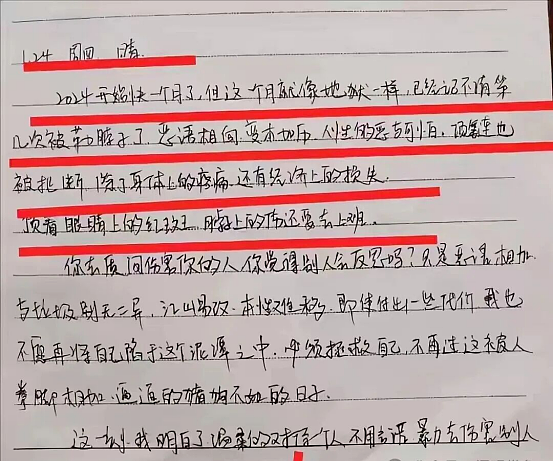 1.24 周四 晴
2024开始快一个月了,但这一个月就像地狱一样,已经记不清第
几次被勒脖子了,恶语相向,变本加厉,人性的恶与可怕,项链也
被扯断,除了身体上的疼痛,还有经济上的损失.
顶着眼睛上的红斑,脖子上的伤还要去上班.
你去质问伤害你的人,你觉得别人会反思吗?只是恶语相加
与垃圾别无二异,江山易改,本性难移,即使付出一些代价,我也
不愿再将自己陷于这个泥潭之中,必须拯救自己,不再过这被人
拳脚相加,逼逼的猪狗不如的日子.
这一刻,我明白了温柔的对待一个人,不用言语暴力去伤害别人